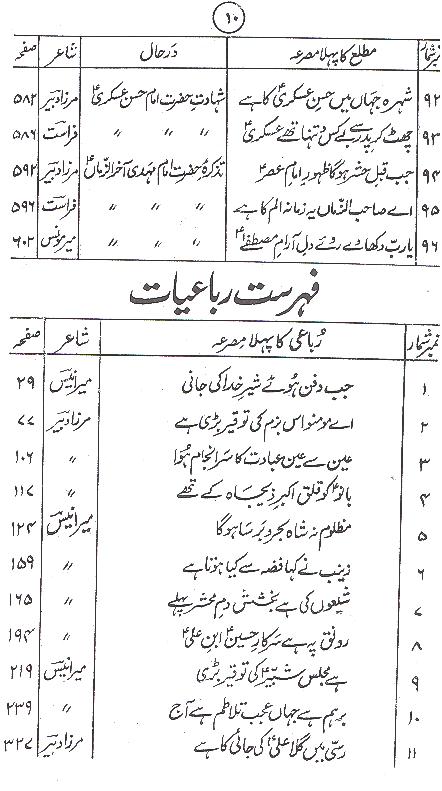 ۱۰
نمبر شمار مطلع کا پہلا مصرعہ در حال شاعر صفحہ
۹۲ شہرہ جہاں میں حسن عسکریؑ کا ہے شہادت حضرت امام حسن عسکریؑ مرزا دبیر ۵۸۲
۹۳ چھٹ کر پدر سے بے کس و تنہا تھے عسکریؑ " " " فراست ۵۸۶
۹۴ جب قبل حشر ہوگا ظہور امام عصرؑ تذکرہ حضرت امام مہدی آخر الزماںؑ مرزا دبیر ۵۹۲
۹۵ اے صاحب الزماں یہ زمانہ الم کا ہے " " " فراست ۵۹۶
۹۶ یارب دکھا دے روئے دل آرام مصطفےٰؐ " " " میر مونس ۶۰۲
فہرست رباعیات
نمبر شمار رباعی کا پہلا مصرعہ شاعر صفحہ
۱ جب دفن ہوئے شیر خدا کی جانی میر انیس ۲۹
۲ اے مومنو اس بزم کی توقیر بڑی ہے مرزا دبیر ۷۷
۳ عین سے عین عبادت کا سر انجام ہوا " ۱۰۶
۴ بانوؑ کو قلق اکبر ذیجاہ کے تھے " ۱۱۷
۵ مظلوم نہ شاہ بحر و بر سا ہوگا میر انیس ۱۲۴
۶ زینب نے کہا فضہ سے کیا ہوتا ہے " ۱۵۹
۷ شیعوں کی ہے بخشش دم محشر پہلے " ۱۶۵
۸ رونق پہ ہے سرکار حسینؑ ابن علیؑ " ۱۹۴
۹ ہے مجلس شبیرؑ کی توقیر بڑی میر انیس ۲۱۹
۱۰ برہم ہے جہاں عجب تلاطم ہے آج " ۲۳۹
۱۱ رسی میں گلا علیؑ کی جائی کا ہے مرزا دبیر ۳۲۷